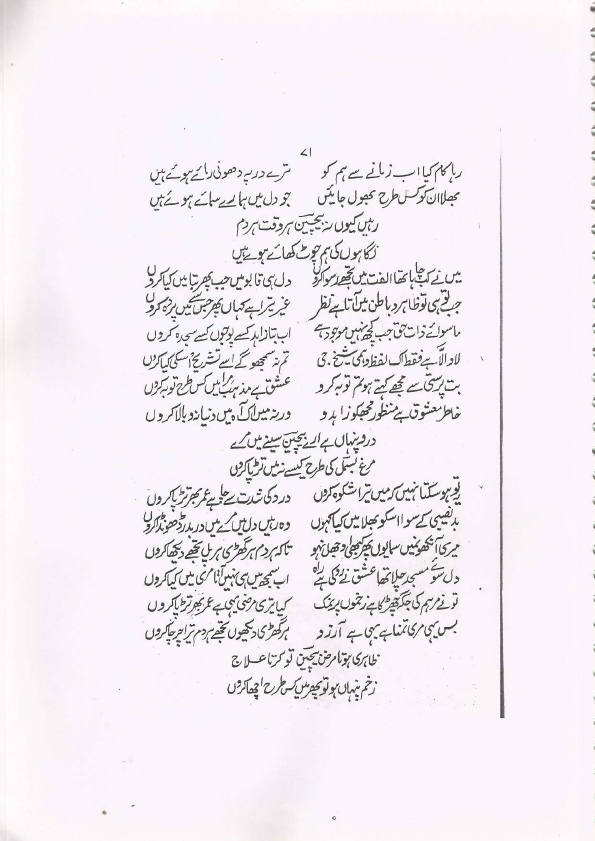 ۷۱
رہا کام کیا اب زمانے سے ہم کو تیرے در پہ دھونی رمائے ہوئے ہیں
بھلا ان کو کس طرح بھول جائیں جو دل میں ہمارے سمائے ہوئے ہیں
رہیں کیوں نہ بیچین ہر وقت ہر دم
نگاہوں کی ہم چوٹ کھائے ہوئے ہیں
میں نے کب چاہا تھا الفت میں تجھے رسوا کروں دل ہی قابو میں نہیں جب پھر بتا میں کیا کروں
جب تو ہی تو ظاہر و باطن میں آتا ہے نظر غیر تیرا ہے کہاں پھر جس سے میں پردہ کروں
ماسوائے ذات حق جب کچھ نہیں موجود ہے اب بتا زاہد کسے پوجوں کسے سجدہ کروں
لا و الّا ہے فقط اک لفظ وہمی شیخ جی تم نہ سمجھو گے اسے تشریح اسکی کیا کروں
بت پرستی سے مجھے کہتے ہو تم توبہ کرو عشق ہے مذہب مرا میں کس طرح توبہ کروں
خاطر معشوق ہے منظور مجھکو زاہدو ورنہ میں اک آہ میں دنیا تہ و بالا کروں
درد پنہاں ہے ارے بیچین سینے میں مرے
مرغ بسمل کی طرح کیسے نہ میں تڑپا کروں
یہ تو ہو سکتا نہیں کہ میں تیرا شکوہ کروں درد کی شدت سے چاہے عمر بھر تڑپا کروں
بدنصیبی کے سوا اسکو بھلا میں کیا کہوں وہ رہیں دل میں مرے میں در بدر ڈھونڈا کروں
میری آنکھوں میں سمایوں پھر کبھی اوجھل نہو تاکہ ہر دم ہر گھڑی ہر پل تجھے دیکھا کروں
دل سوئے مسجد چلا تھا عشق نے روکی ہے راہ اب سمجھ میں ہی نہیں آتا مری میں کیا کروں
تو نے مرہم کی جگہ چھڑکا ہے زخموں پر نمک کیا تری مرضی یہی ہے عمر بھر تڑپا کروں
بس یہی مری تمنا ہے یہی ہے آرزو ہر گھڑی دیکھوں تجھے ہر دم ترا چرچا کروں
ظاہری ہوتا مرض بیچین تو کرتا علاج
زخم پنہاں ہو تو پھر میں کس طرح اچھا کروں